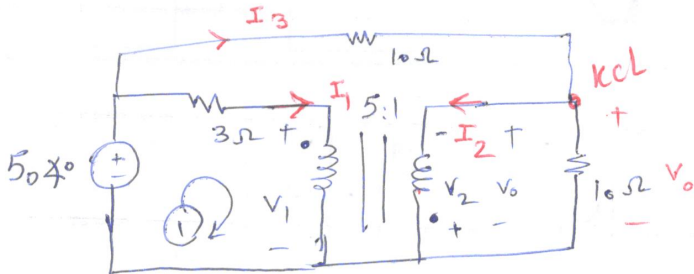 I3
10Ω
KCL
I1
5:1
+
3Ω
+
-
I2
+
50∡0°
+
-
1
V1
V2
V0
10Ω
V0
-
+
-
-